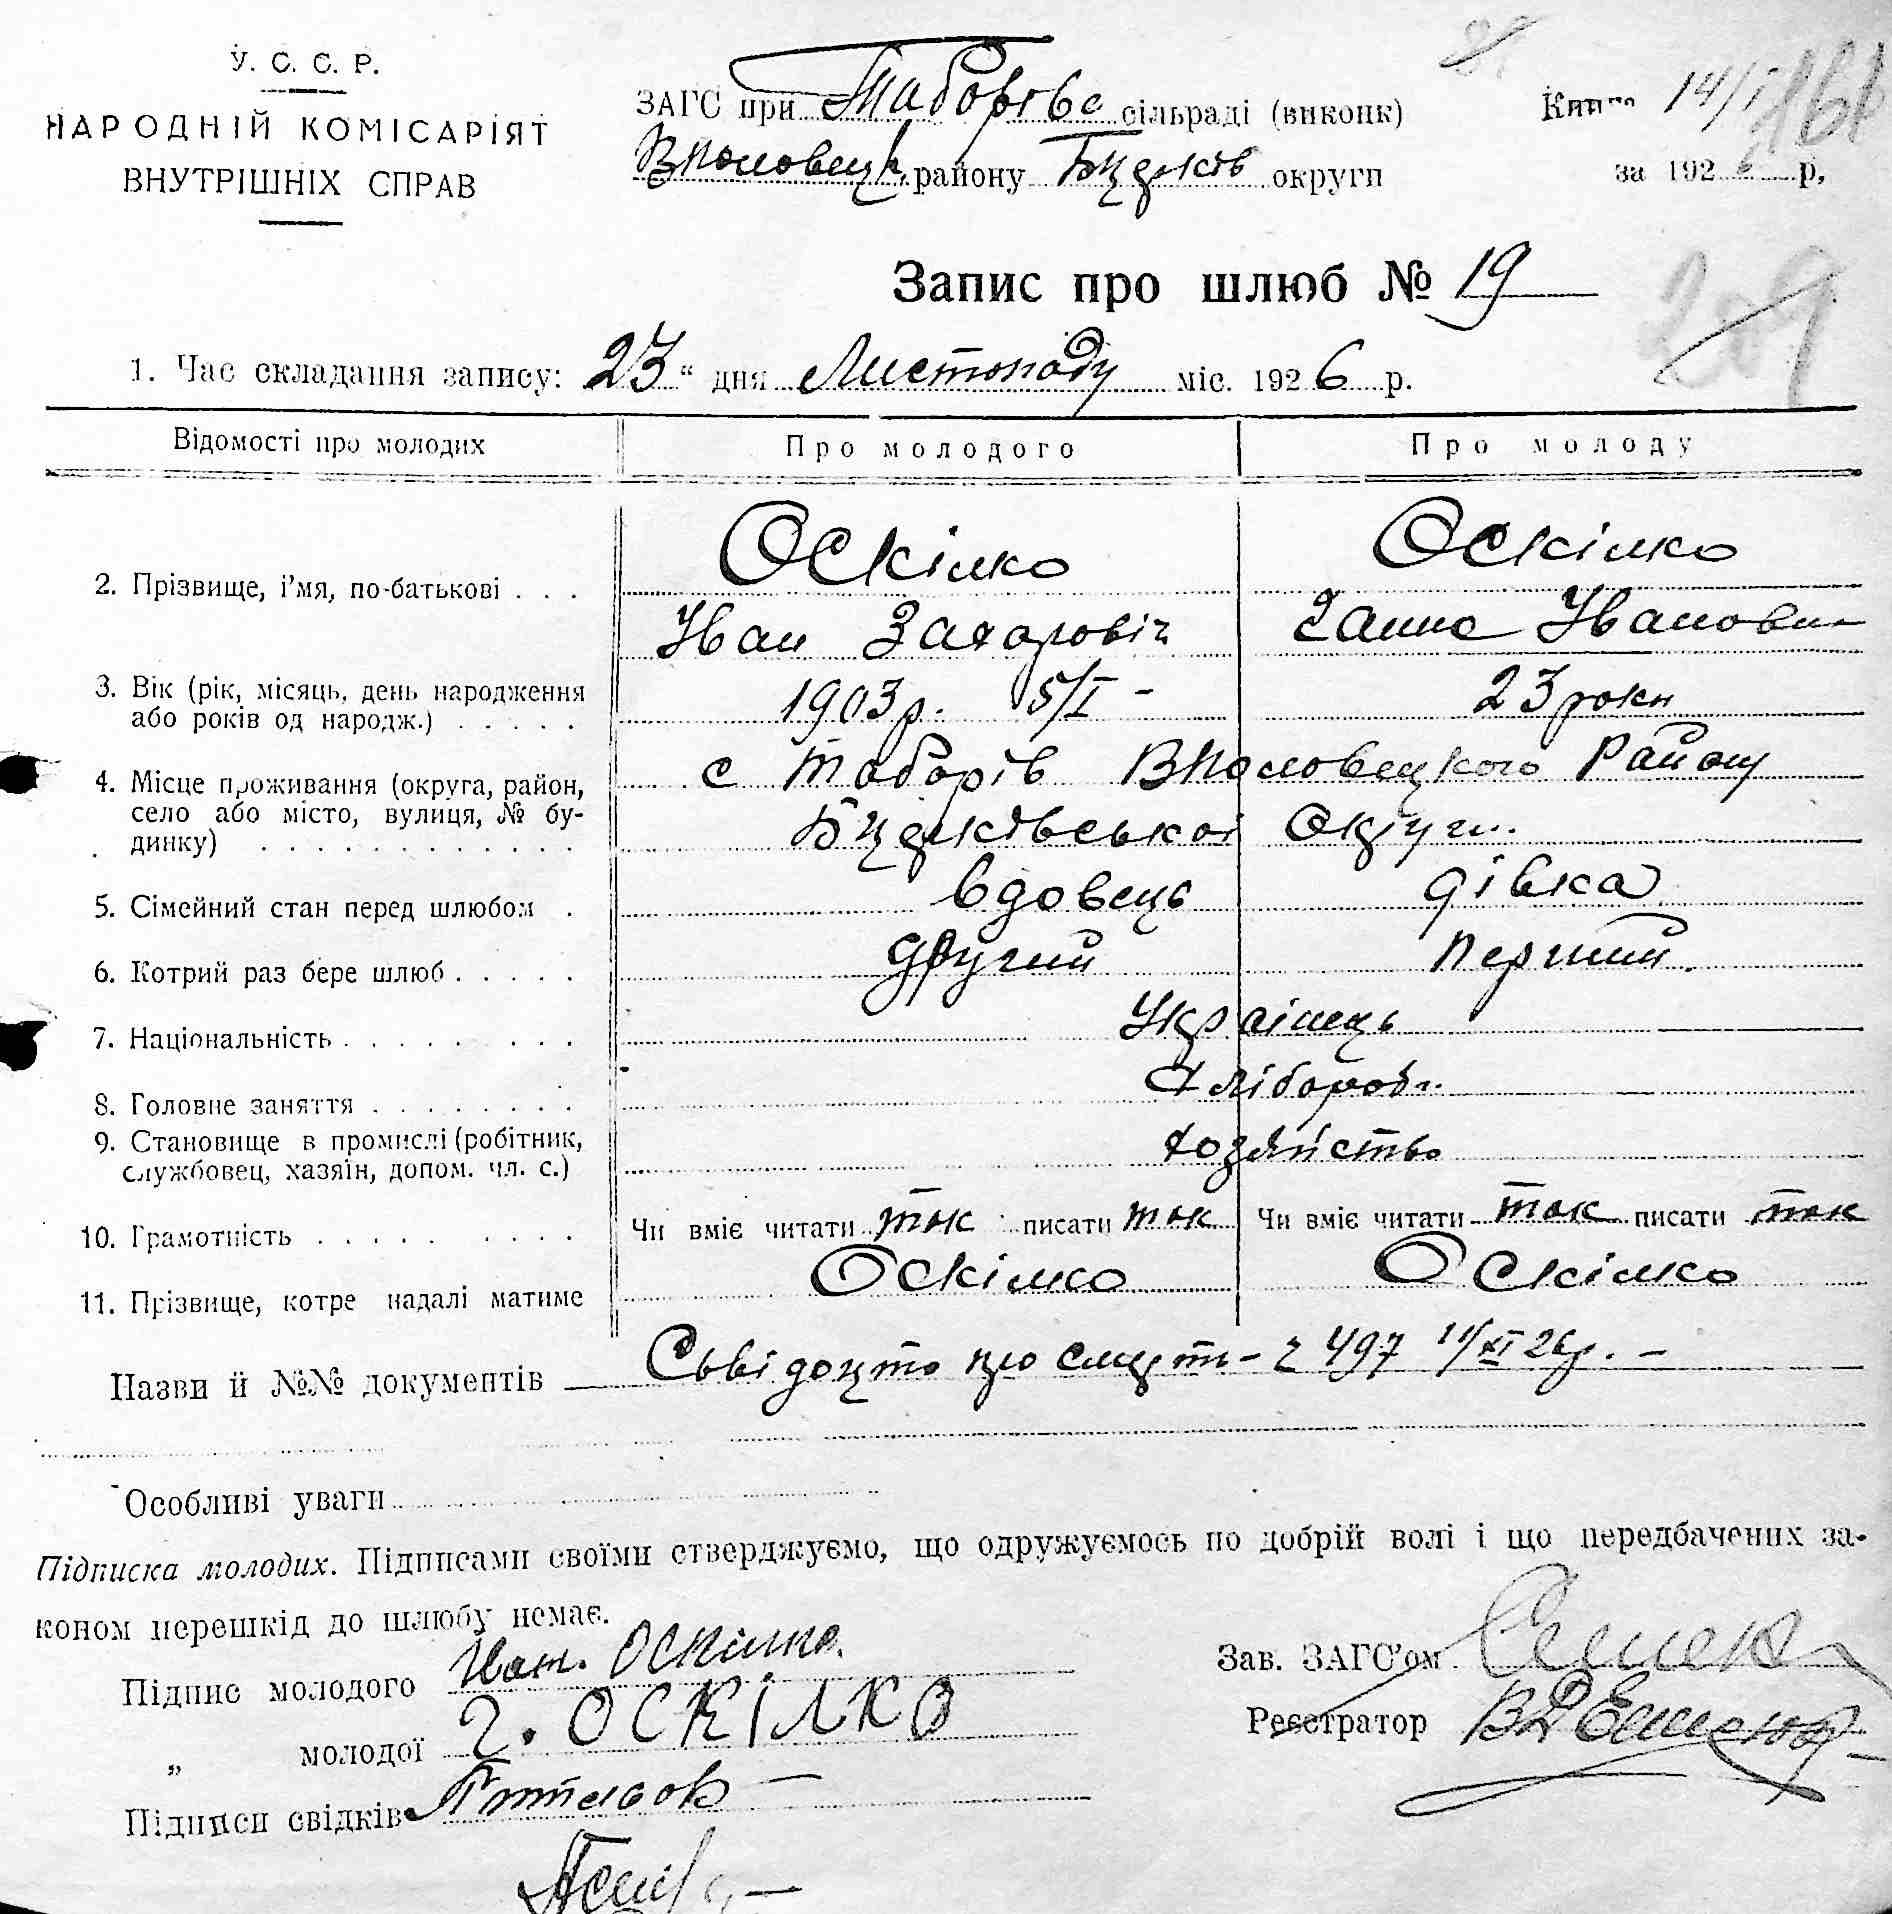 У. С. С. Р.
НАРОДНІЙ КОМІСАРІЯТ
ВНУТРІШНІХ СПРАВ
ЗАГС при Таборівс сільраді (виконк)
ВПоловецьк. району Бцерків округи
Книга 14/I
за 1926 р,
Запис про шлюб № 19
209
1. Час складання запису: 23 " дня Листопаду міс. 1926 р.
Відомості про молодих Про молодого Про молоду
2. Прізвище, і'мя, по-батькові . . . Оскілко Оскілко
Іван Захаровіч Ганна Івановн
3. Вік (рік, місяць, день народження або років од народж.) . . . . . 1903 р. 5/I - 23 роки
4. Місце проживання (округа, район, село або місто, вулиця, № будинку) . . . . . . . . . . . . с Таборів ВПоловецкого Району
Бцерківської Округи.
5. Сімейний стан перед шлюбом . вдовець дівка
6. Котрий раз бере шлюб . . . . . другий перший
7. Національність . . . . . . . . . Українець
8. Головне заняття . . . . . . . . Хлібороб
9. Становище в промислі (робітник, службовец, хазяїн, допом. чл. с.) хозяйство
10. Грамотність . . . . . . . . . Чи вміє читати так писати так Чи вміє читати так писати так
11. Прізвище, котре надалі матиме Оскілко Оскілко
Назви й №№ документів Сьвідоцто про смерть - ч 497 11/XI 26р. -
Особливі уваги
Підписка молодих. Підписами своїми стверджуємо, що одружуємось по добрій волі і що передбачених за-
коном перешкід до шлюбу немає.
Підпис молодого Иван. Оскілко.
„ молодої Г. ОСКІЛКО
Підписи свідків
Зав. ЗАГС'ом
Реєстратор